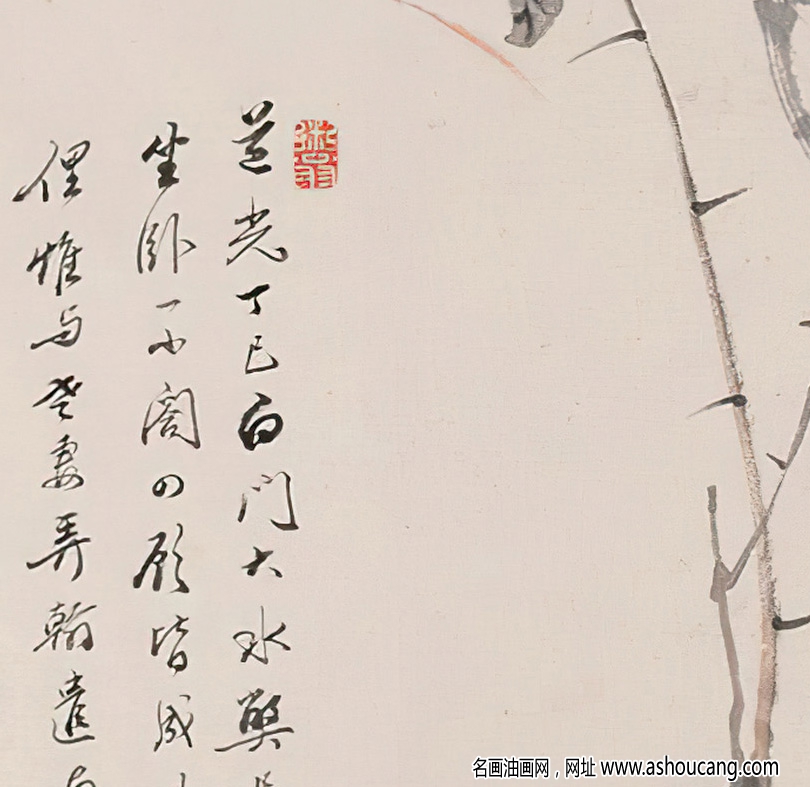 道光丁巳白門大水
坐臥一小閣四顧皆成
俚惟与老妻弄翰遣
名画油画网，网址 www.ashoucang.com